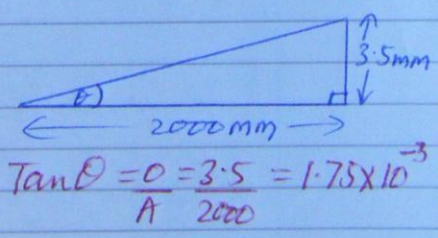 3.5mm
θ
2000mm
Tanθ = O/A = 3.5/2000 = 1.75×10⁻³